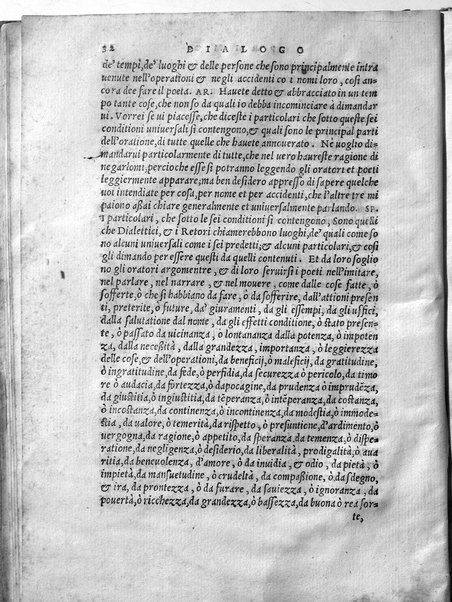 32 DIALOGO
de' tempi, de' luoghi & delle persone che sono principalmente intra
uenute nell'operationi & negli accidenti co i nomi loro, così an-
cora dee fare il poeta. AR. Hauete detto & abbracciato in un tem
po tante cose, che non so da quali io debba incominciare à dimandar
ui. Vorrei se ui piacesse, che diceste i particolari che sotto queste sei
conditioni uniuersali si contengono, & quali sono le principal parti
dell'oratione, di tutte quelle che hauete annouerato. Ne uoglio di-
mandarui particolarmente di tutte, che nel uero haureste ragione di
negarlomi, percioche esse si potranno leggendo gli oratori et poeti
leggiermente apparare, ma ben desidero appresso di sapere quelche
uoi intendiate per cosa, per nome et per accidenti, che l'altre tre mi
paiono assai chiare generalmente et uniuersalmente parlando. SP.
I particolari, che sotto le sei conditioni si contengono, sono quelli
che Dialettici, & i Retori chiamerebbono luoghi, de' quali come so
no alcuni uniuersali i sei predetti; & alcuni particolari, & così
gli dimando per essere questi da quelli contenuti. Et da loro soglio
no gli oratori argomentre, & di loro seruirsi i poeti nell'imitare,
nel parlare, nel narrare, & nel mouere, come dalle cose fatte, ò
sofferte, ò che si habbiano da fare, ò da sofferire, dall'attioni presen
ti, preterite, ò future, da' giuramenti, da gli essempi, da gli uffici,
dalla salutatione dal nome, da gli effetti conditione, ò stato presen-
te, ò passato da uicinanza, ò lontananza dalla potenza, ò impoten
za, dalla necessità, dalla grandezza, importanza, ò leggierezza
delle cose, & dell'operationi, da beneficij, ò maleficij, da gratitudine,
ò ingratitudine, da fede, ò perfidia, da securezza ò pericolo, da timo
re ò audacia, da fortezza, ò dapocagine, da prudenza ò imprudẽza,
da giustitia, ò ingiustitia, da tẽperanza, ò intẽperanza, da costanza,
ò incostanza, da continenza, ò incontinenza, da modestia, ò immode-
stia, da ualore, ò temerità, da rispetto, ò presuntione, d'ardimento, ò
uergogna, da ragione, ò appetito, da speranza, da temenza, ò dispe-
ratione, da negligenza, ò desiderio, da liberalità, prodigalità, ò aua
ritia, da beneuolenza, d'amore, ò da inuidia, & odio, da pietà, ò
impietà, da mansuetudine, ò crudeltà, da compassione, ò, da sdegno,
& ira, da prontezza, ò da furare, da sauiezza, ò ignoranza, da
pouertà, ò ricchezza, da grandezza, ò bassezza, da buona ò rea sor-
te,